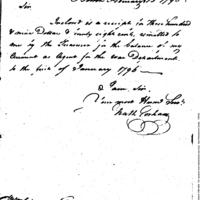 Sir
Inclosed is a receipt in three hundred
& nine Dollars & ninety eight cents, remitted to
me by the Treasurer for the balance of my
Account as Agent for the War Department
to the first of January 1796
I am Sir
Your most Humb Serv
Nath Gorham